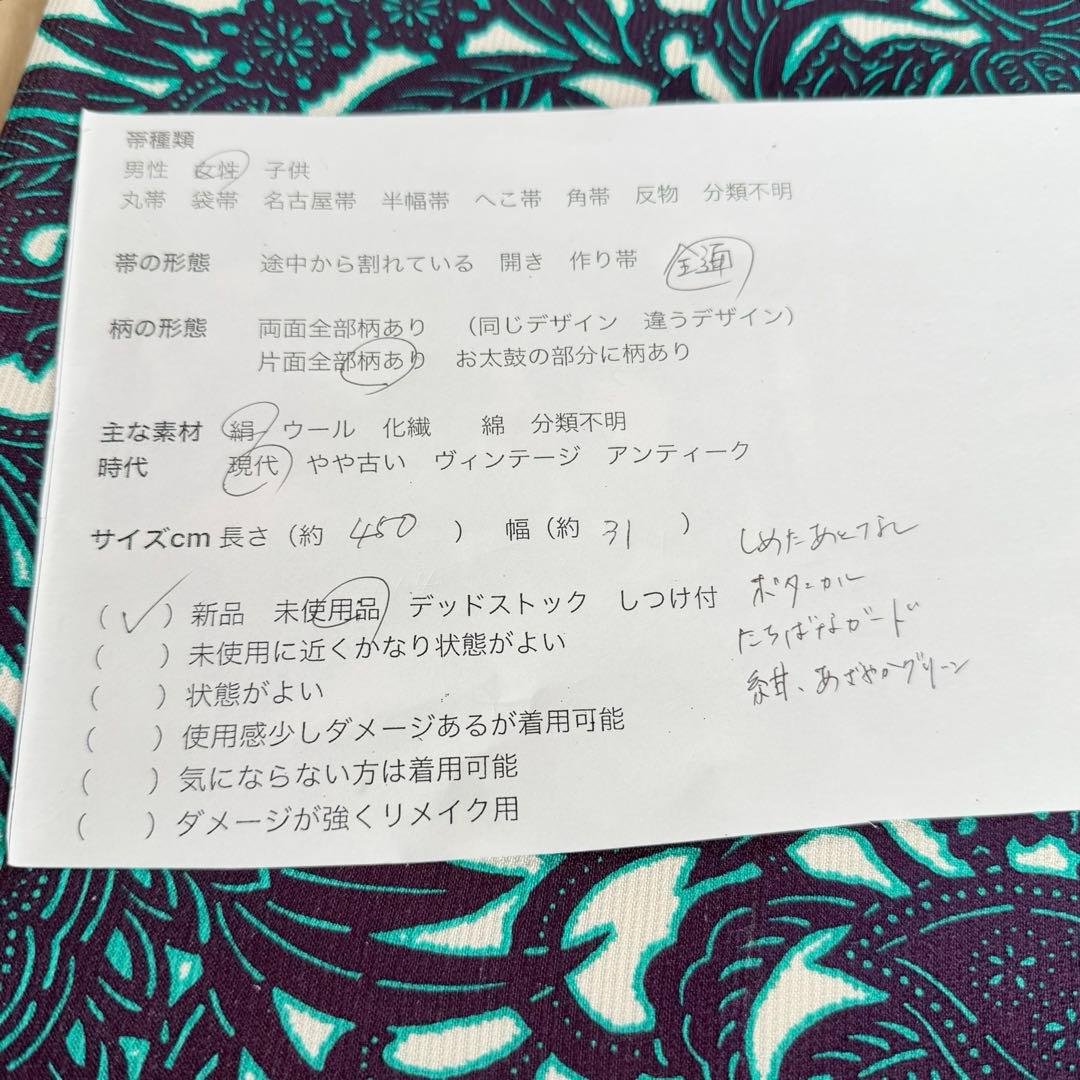 帯種類
男性 女性 子供
丸帯 袋帯 名古屋帯 半幅帯 へこ帯 角帯 反物 分類不明
帯の形態 途中から割れている 開き 作り帯 全通
柄の形態 両面全部柄あり （同じデザイン 違うデザイン）
片面全部柄あり お太鼓の部分に柄あり
主な素材 絹 ウール 化繊 綿 分類不明
時代 現代 やや古い ヴィンテージ アンティーク
サイズcm 長さ（約 450 ） 幅（約 31 ）
しめたあとなし
（✓）新品 未使用品 デッドストック しつけ付
ボタニカル
（ ）未使用に近くかなり状態がよい
たちばなガード
（ ）状態がよい
紺、あざやかグリーン
（ ）使用感少しダメージあるが着用可能
（ ）気にならない方は着用可能
（ ）ダメージが強くリメイク用